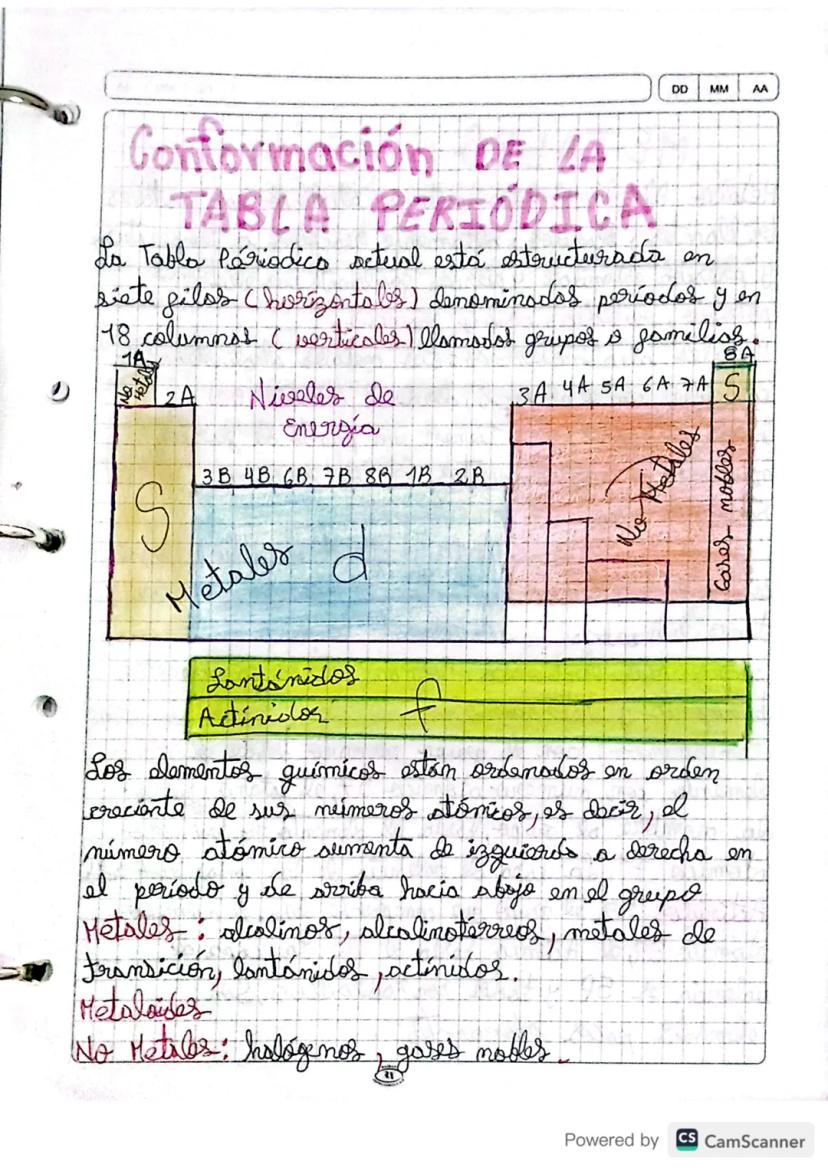 DD MM AA
Conformación DE LA
TABLA PERIÓDICA
La Tabla Périodica actual está estructurada en
siete filas (horizontales) denominadas períodos y en
18 columnas (verticales) llamadas grupos o familias.
1A 8A
No Metales 2A Niveles de 3A 4A 5A 6A 7A S
Energía
3B 4B 6B 7B 8B 1B 2B
S Metales d No Metales Gases nobles
Lantánidos
Actinidos f
Los elementos químicos están ordenados en orden
creciente de sus números atómicos, es decir, el
número atómico aumenta de izquierda a derecha en
el período y de arriba hacia abajo en el grupo
Metales: alcalinos, alcalinotérreos, metales de
transición, lantánidos, actínidos.
Metaloides
No Metales: halógenos, gases nobles.
Powered by CS CamScanner